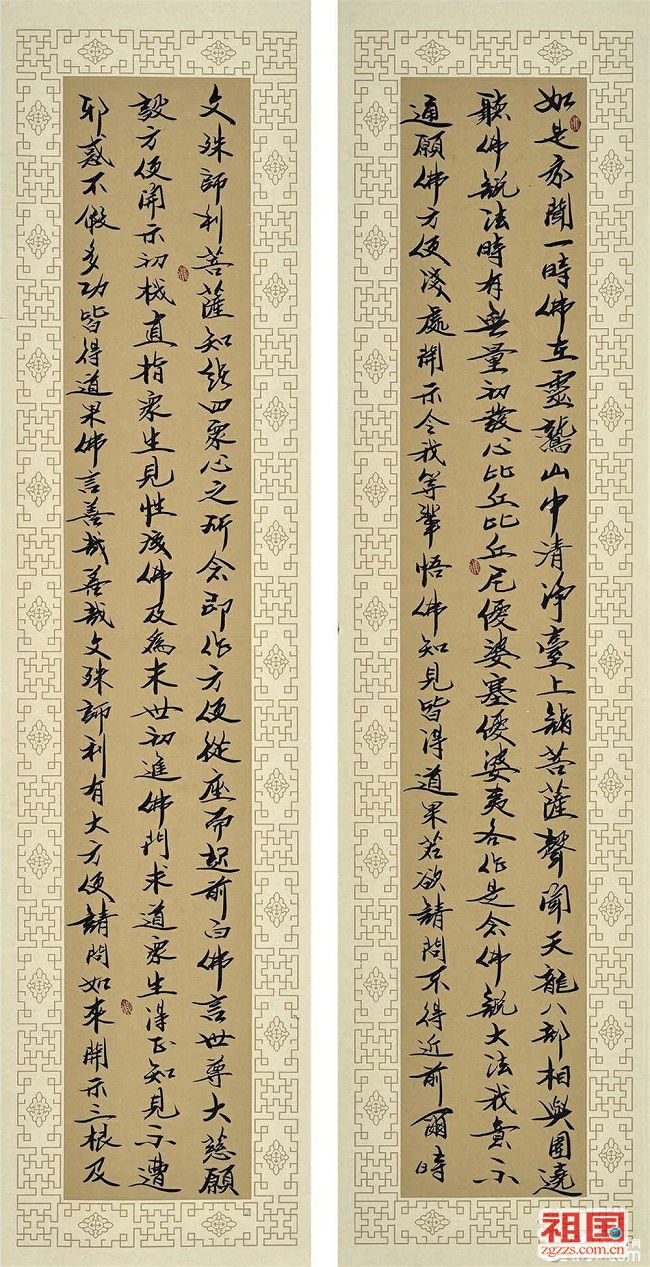 如是我聞一時佛在靈鷲山中清淨臺上諸菩薩聲聞天龍八部相與圍遶
聽佛說法時有無量初發心比丘比丘尼優婆塞優婆夷各作是念佛說大法我實不
通願佛方便淺處開示令我等輩悟佛知見皆得道果若欲請問不得近前爾時
文殊師利菩薩知諸四眾心之所念即作方便從座而起前白佛言世尊大慈願
設方便開示初機直指眾生見性成佛及為末世初進佛門求道眾生得正知見不遭
邪惑不假多功皆得道果佛言善哉善哉文殊師利有大方便請問如來開示三根及
祖国
zgzzs.com.cn